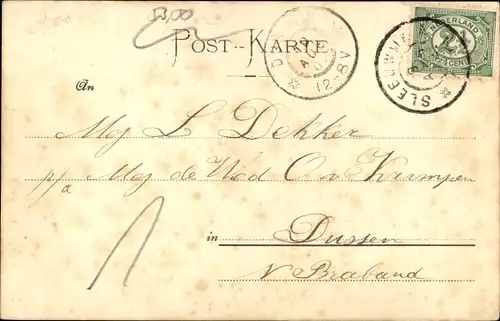 53,00
POST-KARTE
NEDERLAND
2½
CENT
SLEEUWIJK
12-8V
An
Mej L Dekker
p/a Mej de Wed O v Krimpen
in Dussen
N Braband